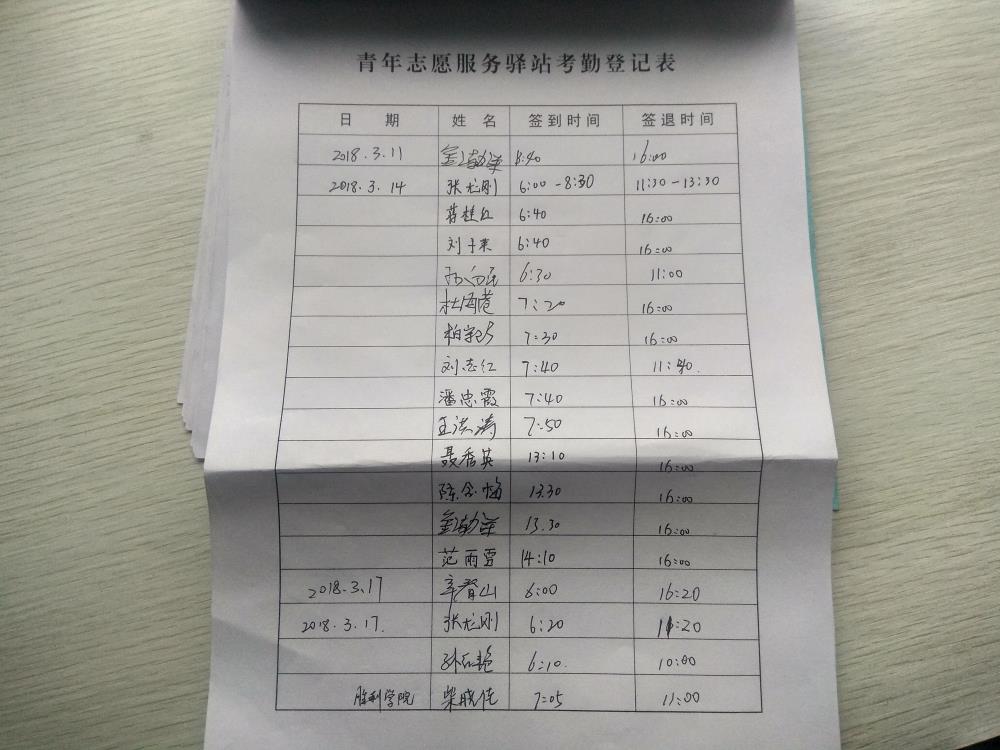 青年志愿服务驿站考勤登记表
日 期 姓 名 签到时间 签退时间
2018.3.11 8:40 16:00
2018.3.14 张龙刚 6:00-8:30 11:30-13:30
蒋桂红 6:40 16:00
刘子来 6:40 16:00
孙向民 6:30 11:00
杜海巷 7:20 16:00
7:30 16:00
刘志红 7:40 11:40.
潘忠霞 7:40 16:00
王洪涛 7:50 16:00
聂香英 13:10 16:00
陈念梅 13.30 16:00
13.30 16:00
范雨雪 14:10 16:00
2018.3.17 辛督山 6:00 16:20
2018.3.17. 张龙刚 6:20 11:20
孙红艳 6:10. 10:00
胜利学院 柴晓佳 7:05 11:00